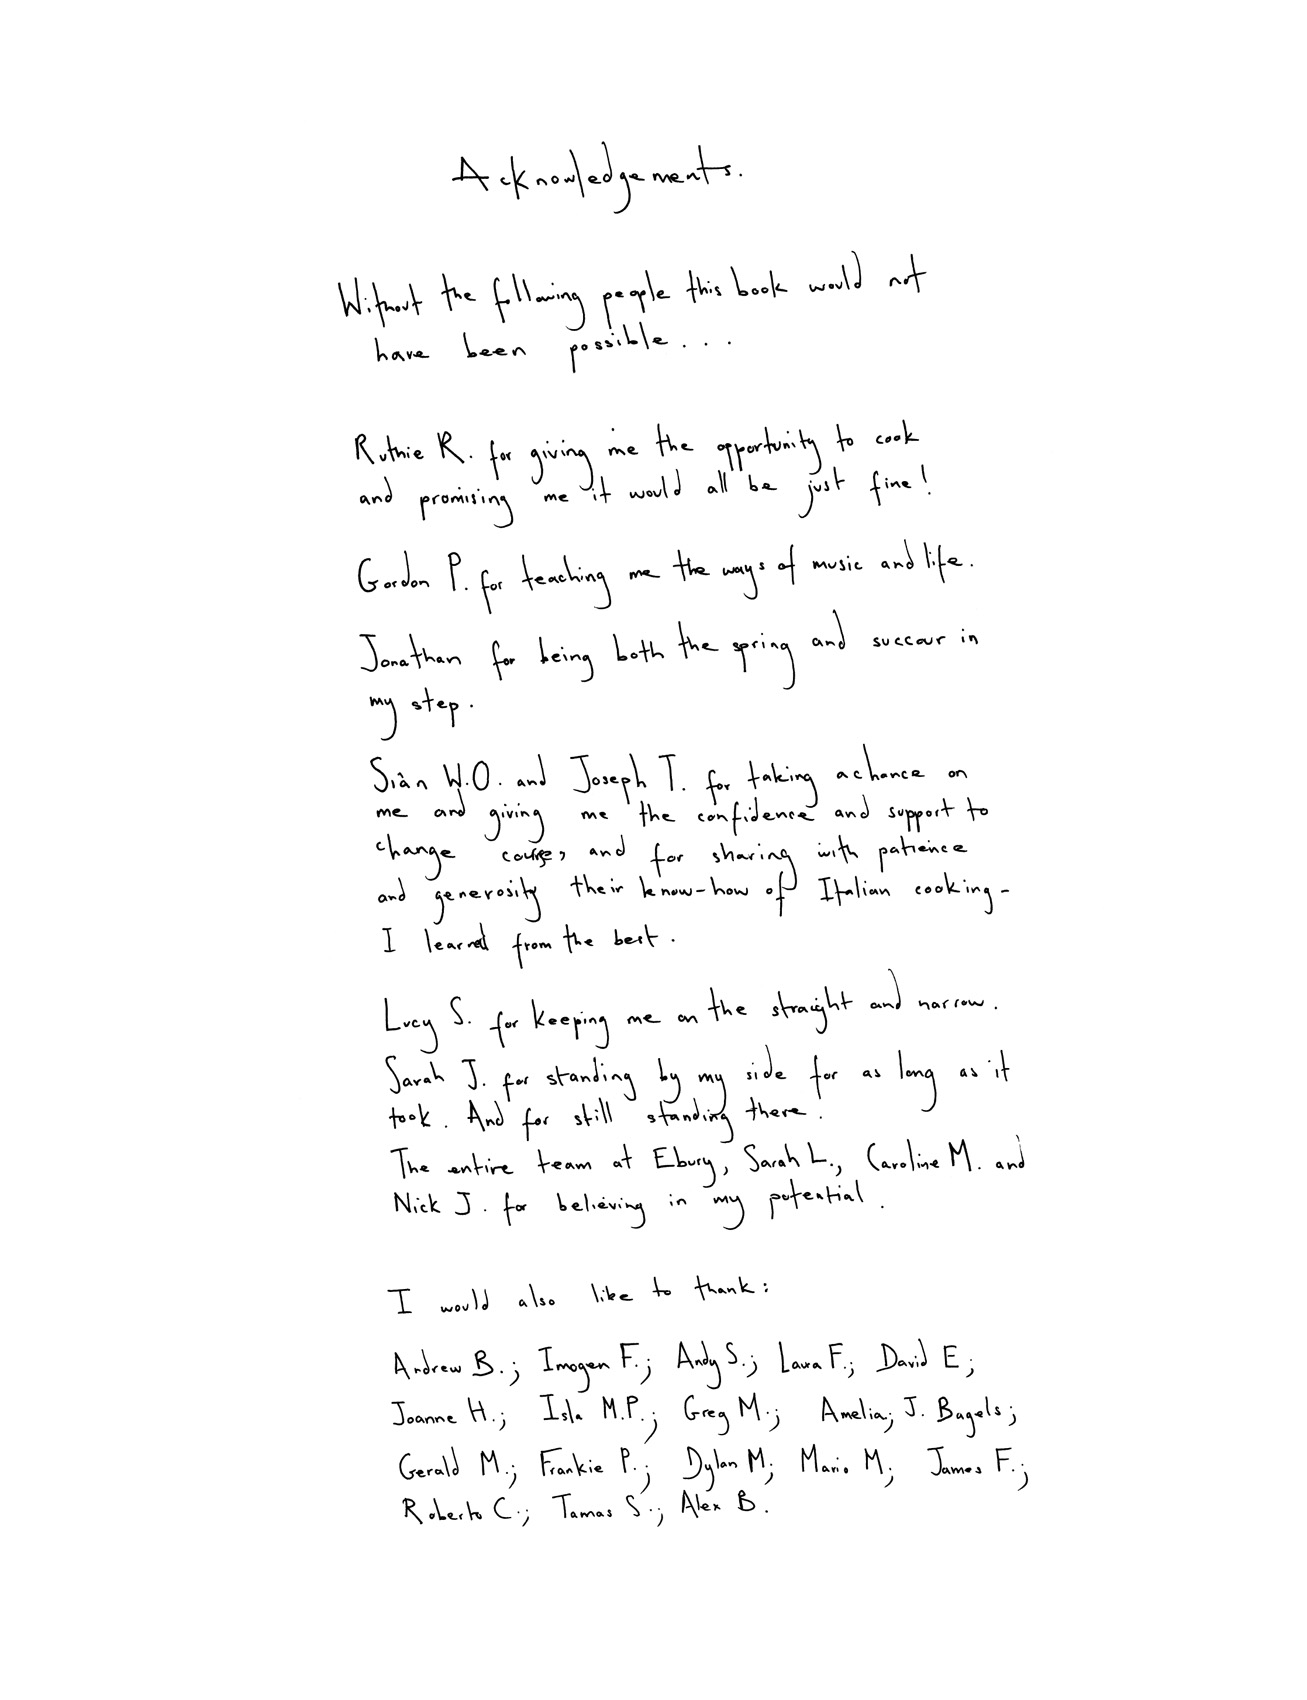 Acknowledgements.
Without the following people this book would not
have been possible...
Ruthie R. for giving me the opportunity to cook
and promising me it would all be just fine!
Gordon P. for teaching me the ways of music and life.
Jonathan for being both the spring and succour in
my step.
Siàn W.O. and Joseph T. for taking a chance on
me and giving me the confidence and support to
change course, and for sharing with patience
and generosity their know-how of Italian cooking-
I learned from the best.
Lucy S. for keeping me on the straight and narrow.
Sarah J. for standing by my side for as long as it
took. And for still standing there.
The entire team at Ebury, Sarah L., Caroline M. and
Nick J. for believing in my potential.
I would also like to thank:
Andrew B.; Imogen F.; Andy S.; Laura F.; David E;
Joanne H.; Isla M.P.; Greg M.; Amelia; J. Bagels;
Gerald M.; Frankie P.; Dylan M; Mario M; James F.;
Roberto C.; Tamas S.; Alex B.